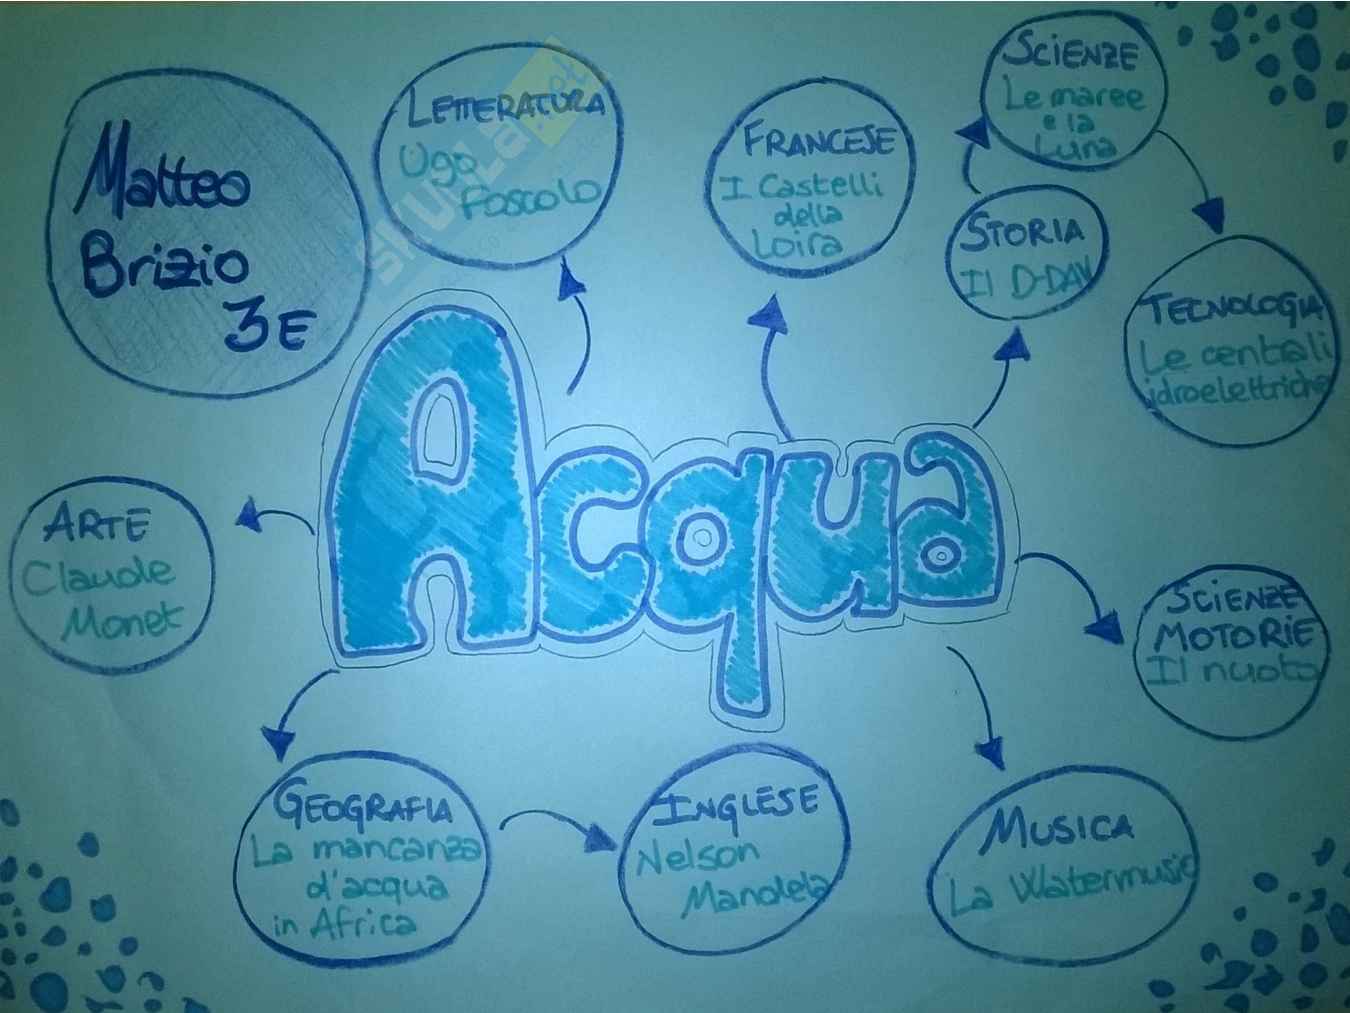 Matteo
Brizio
3E
LETTERATURA
Ugo
Foscolo
FRANCESE
I Castelli
della
Loira
SCIENZE
Le maree
e la
Luna
STORIA
Il D-DAY
TECNOLOGIA
Le centrali
idroelettriche
Acqua
ARTE
Claude
Monet
SCIENZE
MOTORIE
Il nuoto
GEOGRAFIA
La mancanza
d'acqua
in Africa
INGLESE
Nelson
Mandela
MUSICA
La Watermusic